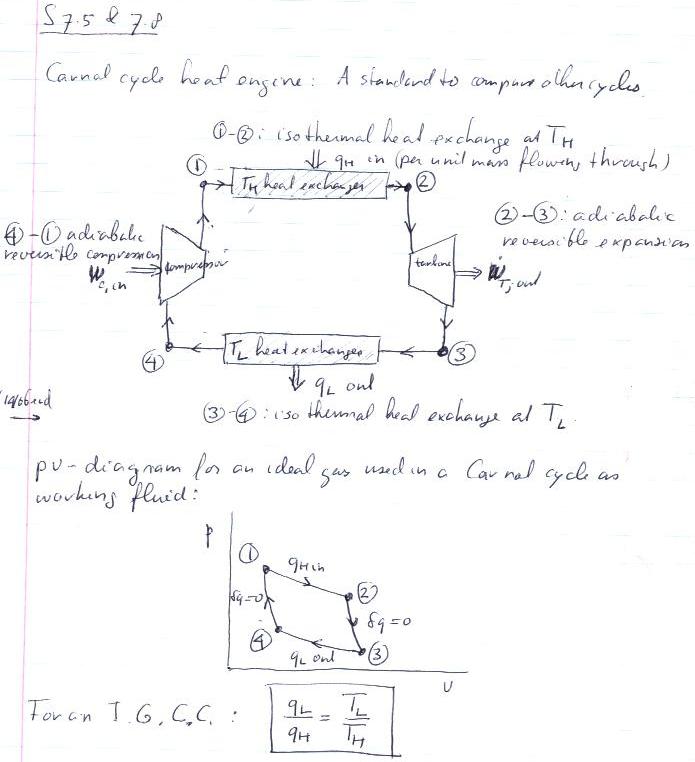 S 7.5 & 7.8
Carnal cycle heat engine: A standard to compare other cycles.
①-②: isothermal heat exchange at T_H
⇓ q_H in (per unit mass flowing through)
① T_H heat exchanger ②
④-① adiabatic
reversible compression
②-③: adiabatic
reversible expansion
Ẇ_C, in compressor
turbine Ẇ_T, out
④ T_L heat exchanger ③
⇓ q_L out
③-④: isothermal heat exchange at T_L
pv-diagram for an ideal gas used in a Carnot cycle as
working fluid:
p
① q_H in ②
δq=0
δq=0
④ q_L out ③
v
For an I.G.C.C.: q_L/q_H = T_L/T_H